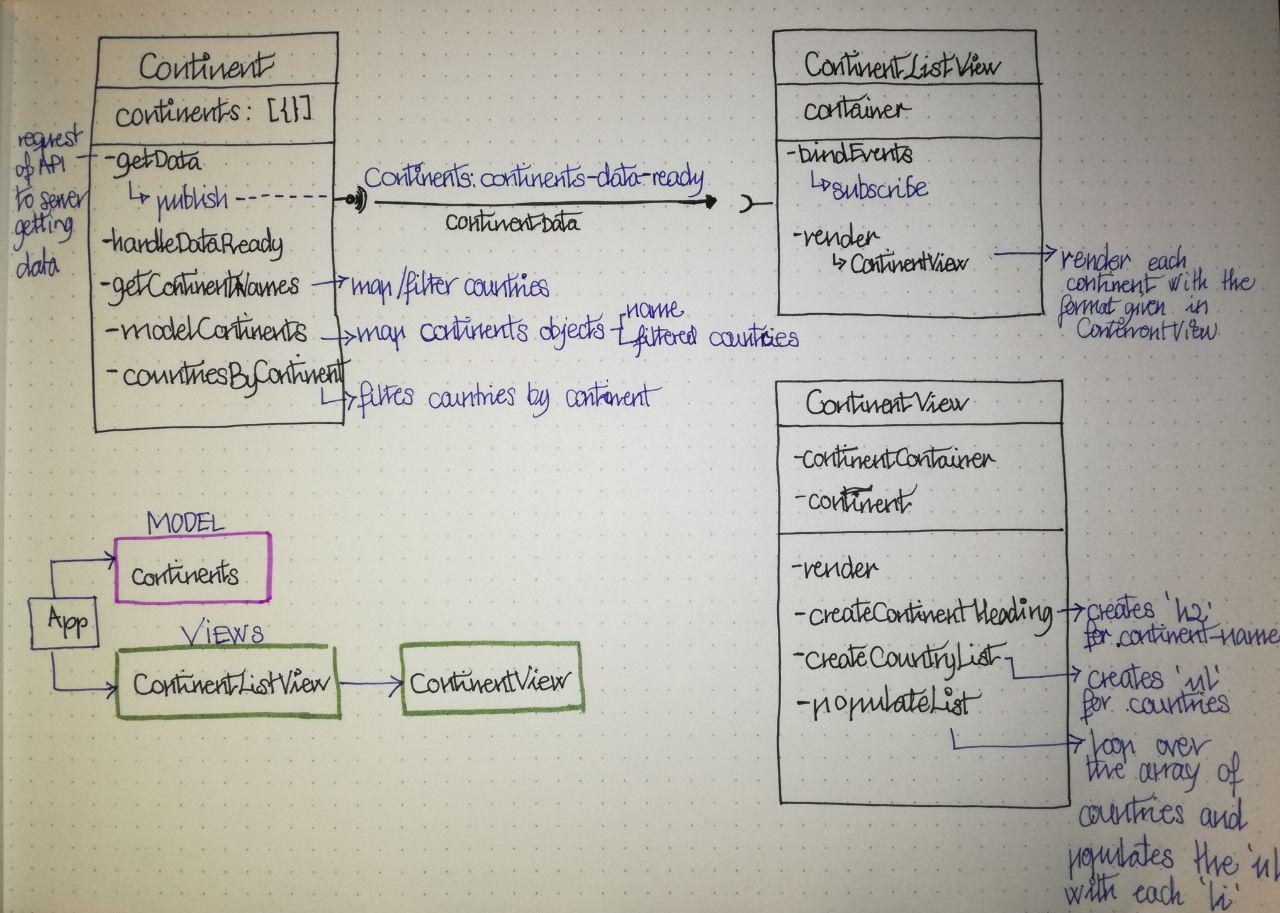 Continent
continents: [{}]
request
of API
to server
getting
data
-getData
↳ publish
-handleDataReady
-getContinentNames
map/filter countries
-modelContinents
map continents objects
name
filtered countries
-countriesByContinent
filtres countries by continent
Continents: continents-data-ready
continentData
ContinentListView
container
-bindEvents
↳ subscribe
-render
↳ ContinentView
render each
continent with the
format given in
ContinentView
ContinentView
-continentContainer
-continent
-render
-createContinentHeading
creates 'h2'
for continent-name
-createCountryList
creates 'ul'
for countries
-populateList
loop over
the array of
countries and
populates the 'ul
with each 'li'
MODEL
continents
App
VIEWS
ContinentListView
ContinentView